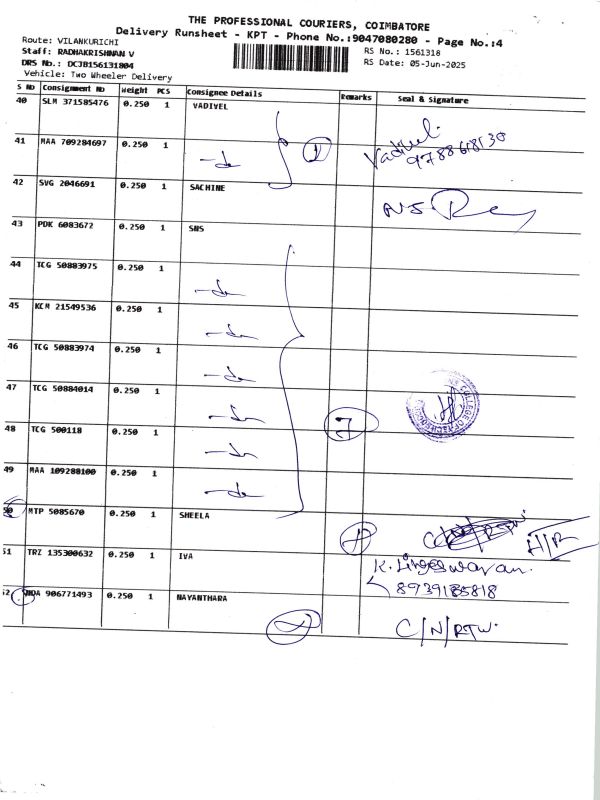 THE PROFESSIONAL COURIERS, COIMBATORE
Delivery Runsheet - KPT - Phone No.:9047080280 - Page No.:4
Route: VILANKURICHI
RS No.: 1561318
Staff: RADHAKRISHNAN V
RS Date: 05-Jun-2025
DRS No.: DCJB156131804
Vehicle: Two Wheeler Delivery
S No Consignment No Weight PCS Consignee Details Remarks Seal & Signature
40 SLM 371585476 0.250 1 VADIVEL
Vadivel.
41 MAA 709284697 0.250 1 -do 1
9788618130
42 SVG 2046691 0.250 1 SACHINE
43 PDK 6083672 0.250 1 SNS
44 TCG 50883975 0.250 1 -do
45 KCM 21549536 0.250 1 -do
46 TCG 50883974 0.250 1 -do
47 TCG 50884014 0.250 1 -do 7
48 TCG 500118 0.250 1 -do
49 MAA 109280100 0.250 1 -do
50 MTP 5085670 0.250 1 SHEELA
H/R
51 TRZ 135300632 0.250 1 IVA K. Lingeswaran.
8939185818
52 NDA 906771493 0.250 1 NAYANTHARA
C/N/RTW.